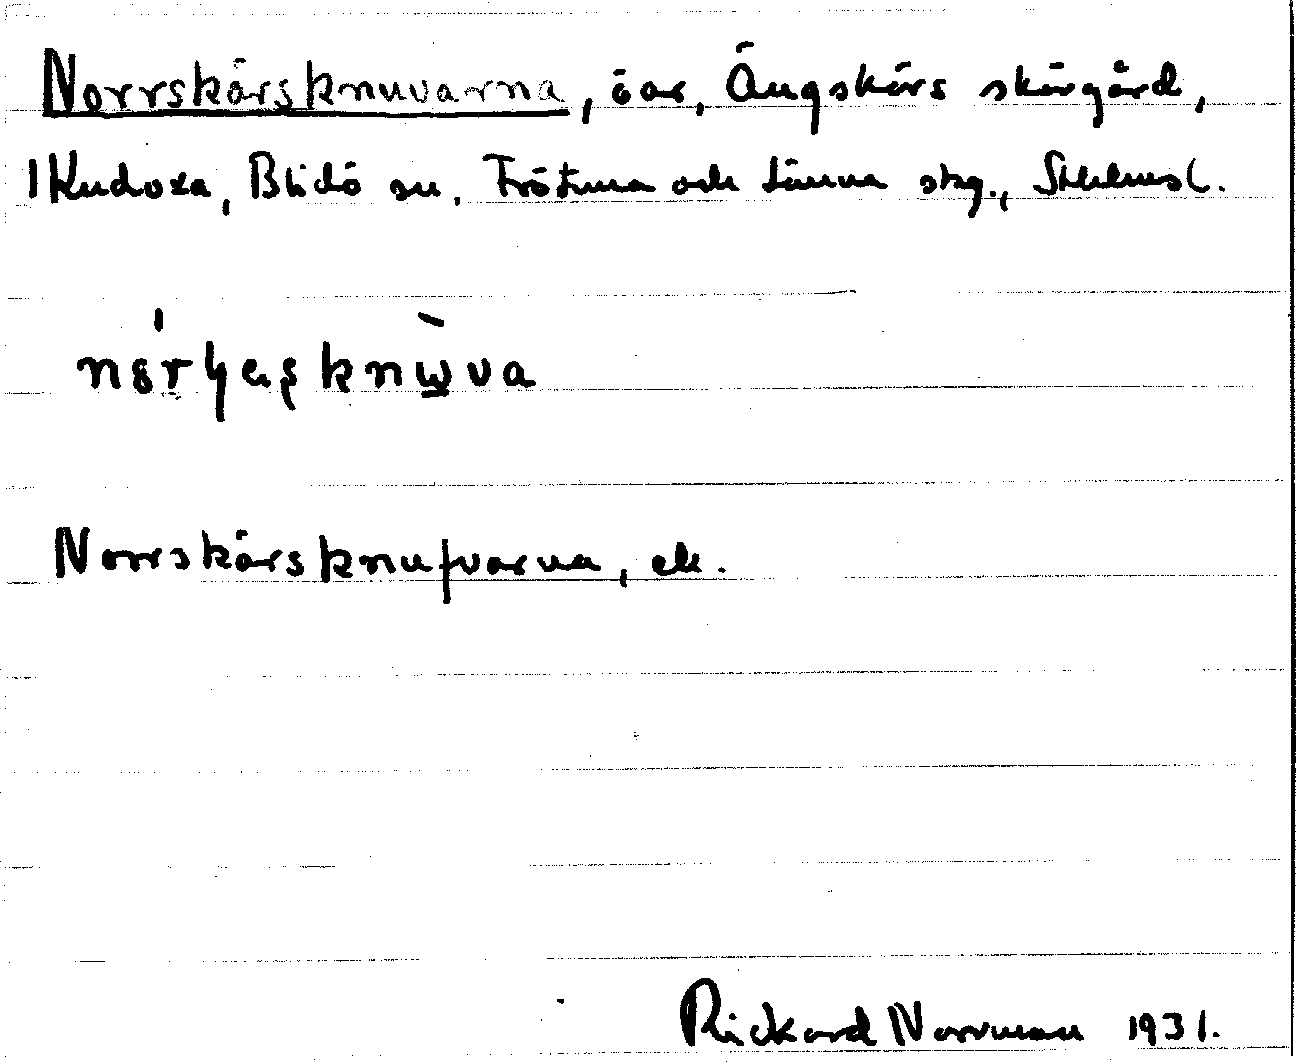 Norrskärsknuvarna, öar, Ängskärs skärgård,
1 Kudoxa, Blidö sn, Frötuna och Länna skg., Sthlmsl.
Norrskärsknufvarna, ek.
Rickard Norrman 1931.